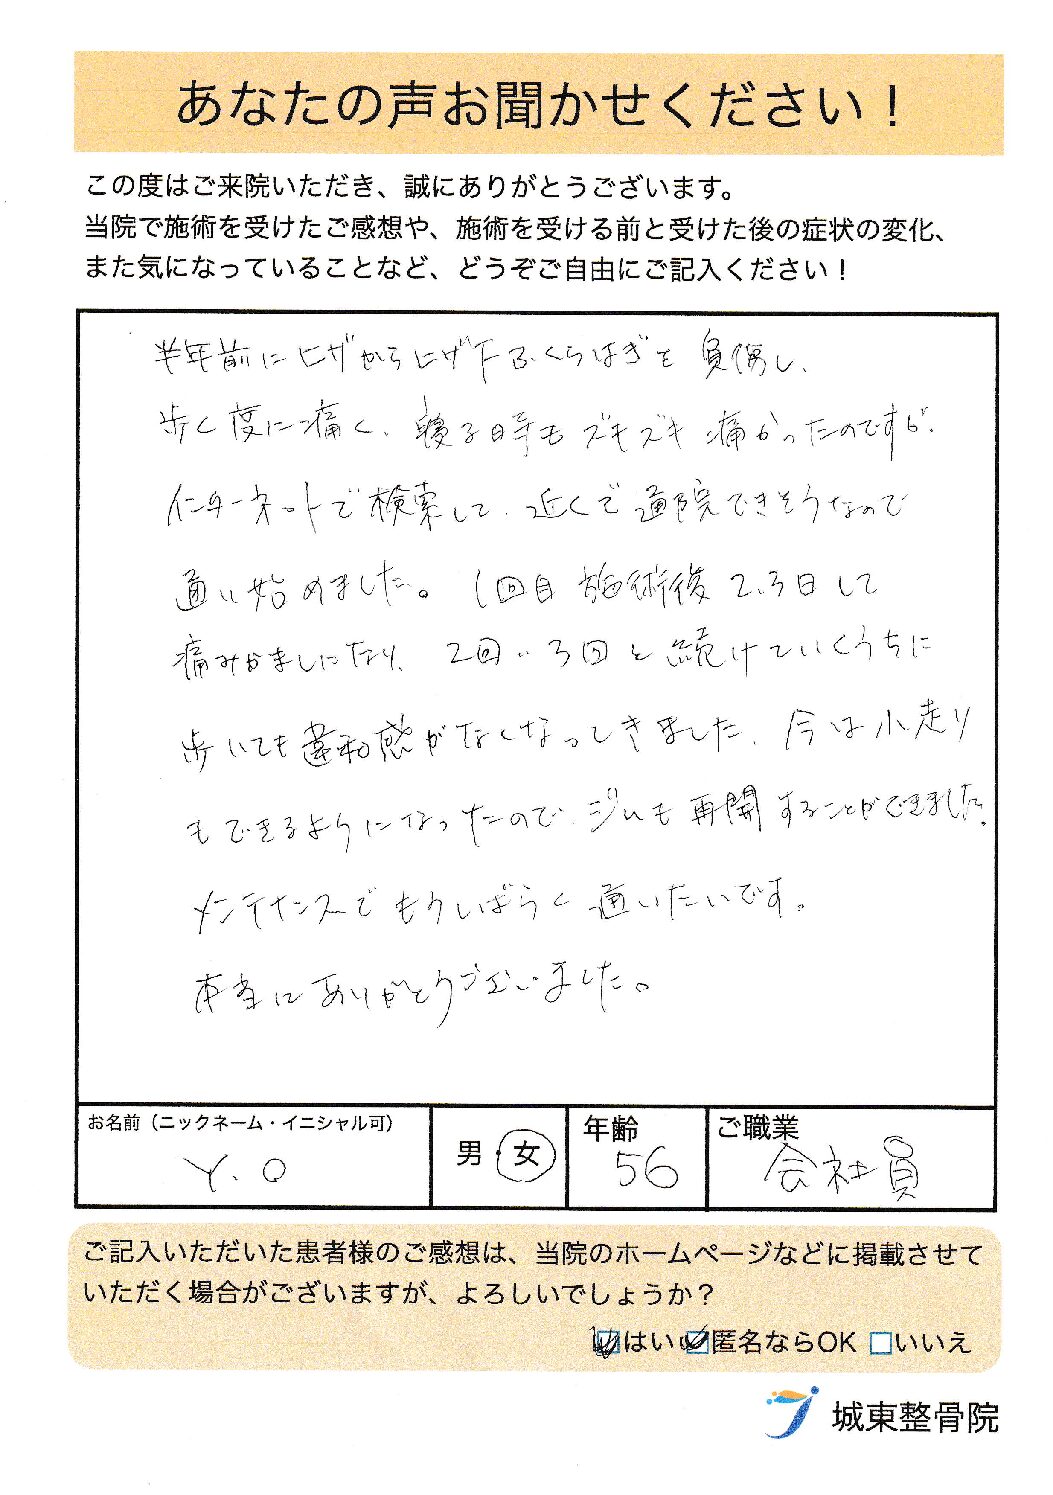 あなたの声お聞かせください！
この度はご来院いただき、誠にありがとうございます。
当院で施術を受けたご感想や、施術を受ける前と受けた後の症状の変化、
また気になっていることなど、どうぞご自由にご記入ください！
半年前にヒザからヒザ下ふくらはぎを負傷し、
歩く度に痛く、寝る時もズキズキ痛かったのですが、
インターネットで検索して、近くで通院できそうなので
通い始めました。1回目施術後2、3日して
痛みがましになり、2回、3回と続けていくうちに
歩いても違和感がなくなってきました、今は小走り
もできるようになったので、ジムも再開することができました。
メンテナンスでもうしばらく通いたいです。
本当にありがとうございました。
お名前（ニックネーム・イニシャル可）
Y.O
男・女
年齢
56
ご職業
会社員
ご記入いただいた患者様のご感想は、当院のホームページなどに掲載させて
いただく場合がございますが、よろしいでしょうか？
はい 匿名ならOK いいえ
城東整骨院